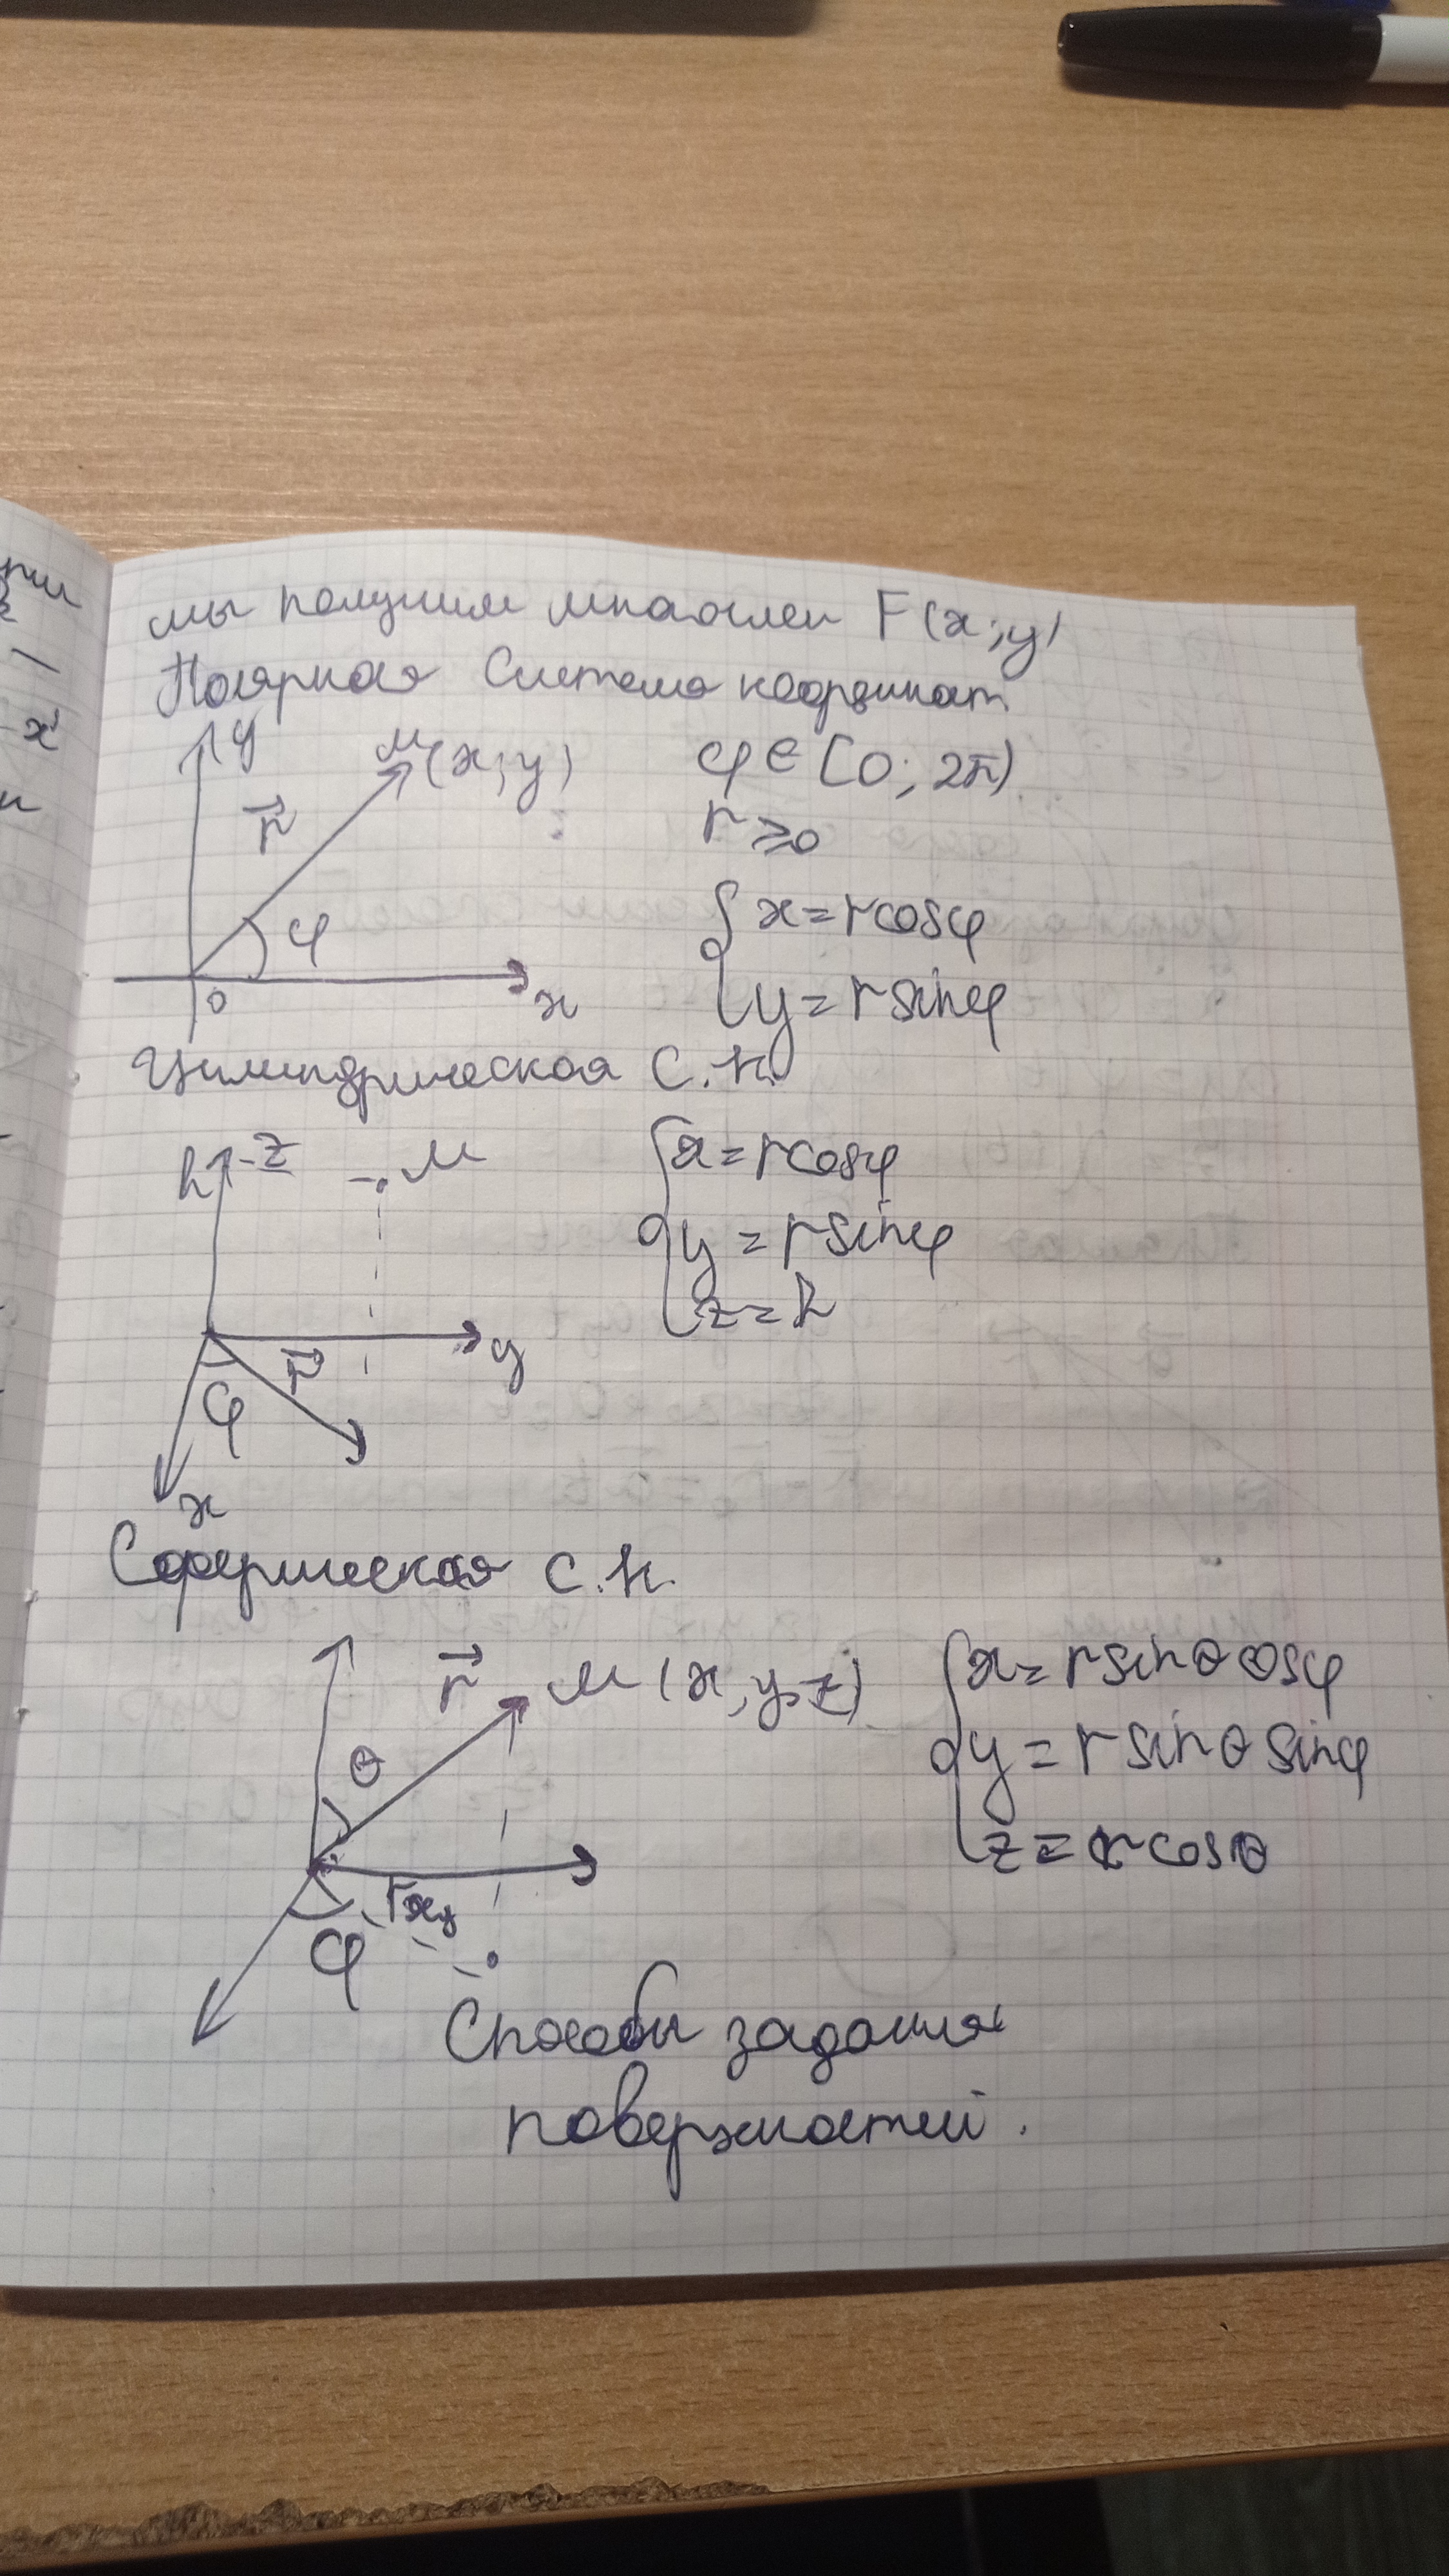 мы получим многочлен F(x;y)
Полярная Система координат
y
M(x;y)
φ∈[0; 2π)
r⃗
r ≥ 0
φ
{ x = r cosφ
0
x
y = r sinφ
Цилиндрическая С.К.
h z
M
{ x = r cosφ
y = r sinφ
z = h
y
r⃗
φ
x
Сферическая С.К.
r⃗
M(x, y, z)
{ x = r sinθ cosφ
θ
y = r sinθ sinφ
z = r cosθ
rxy
φ
Способы задания
поверхностей.
x